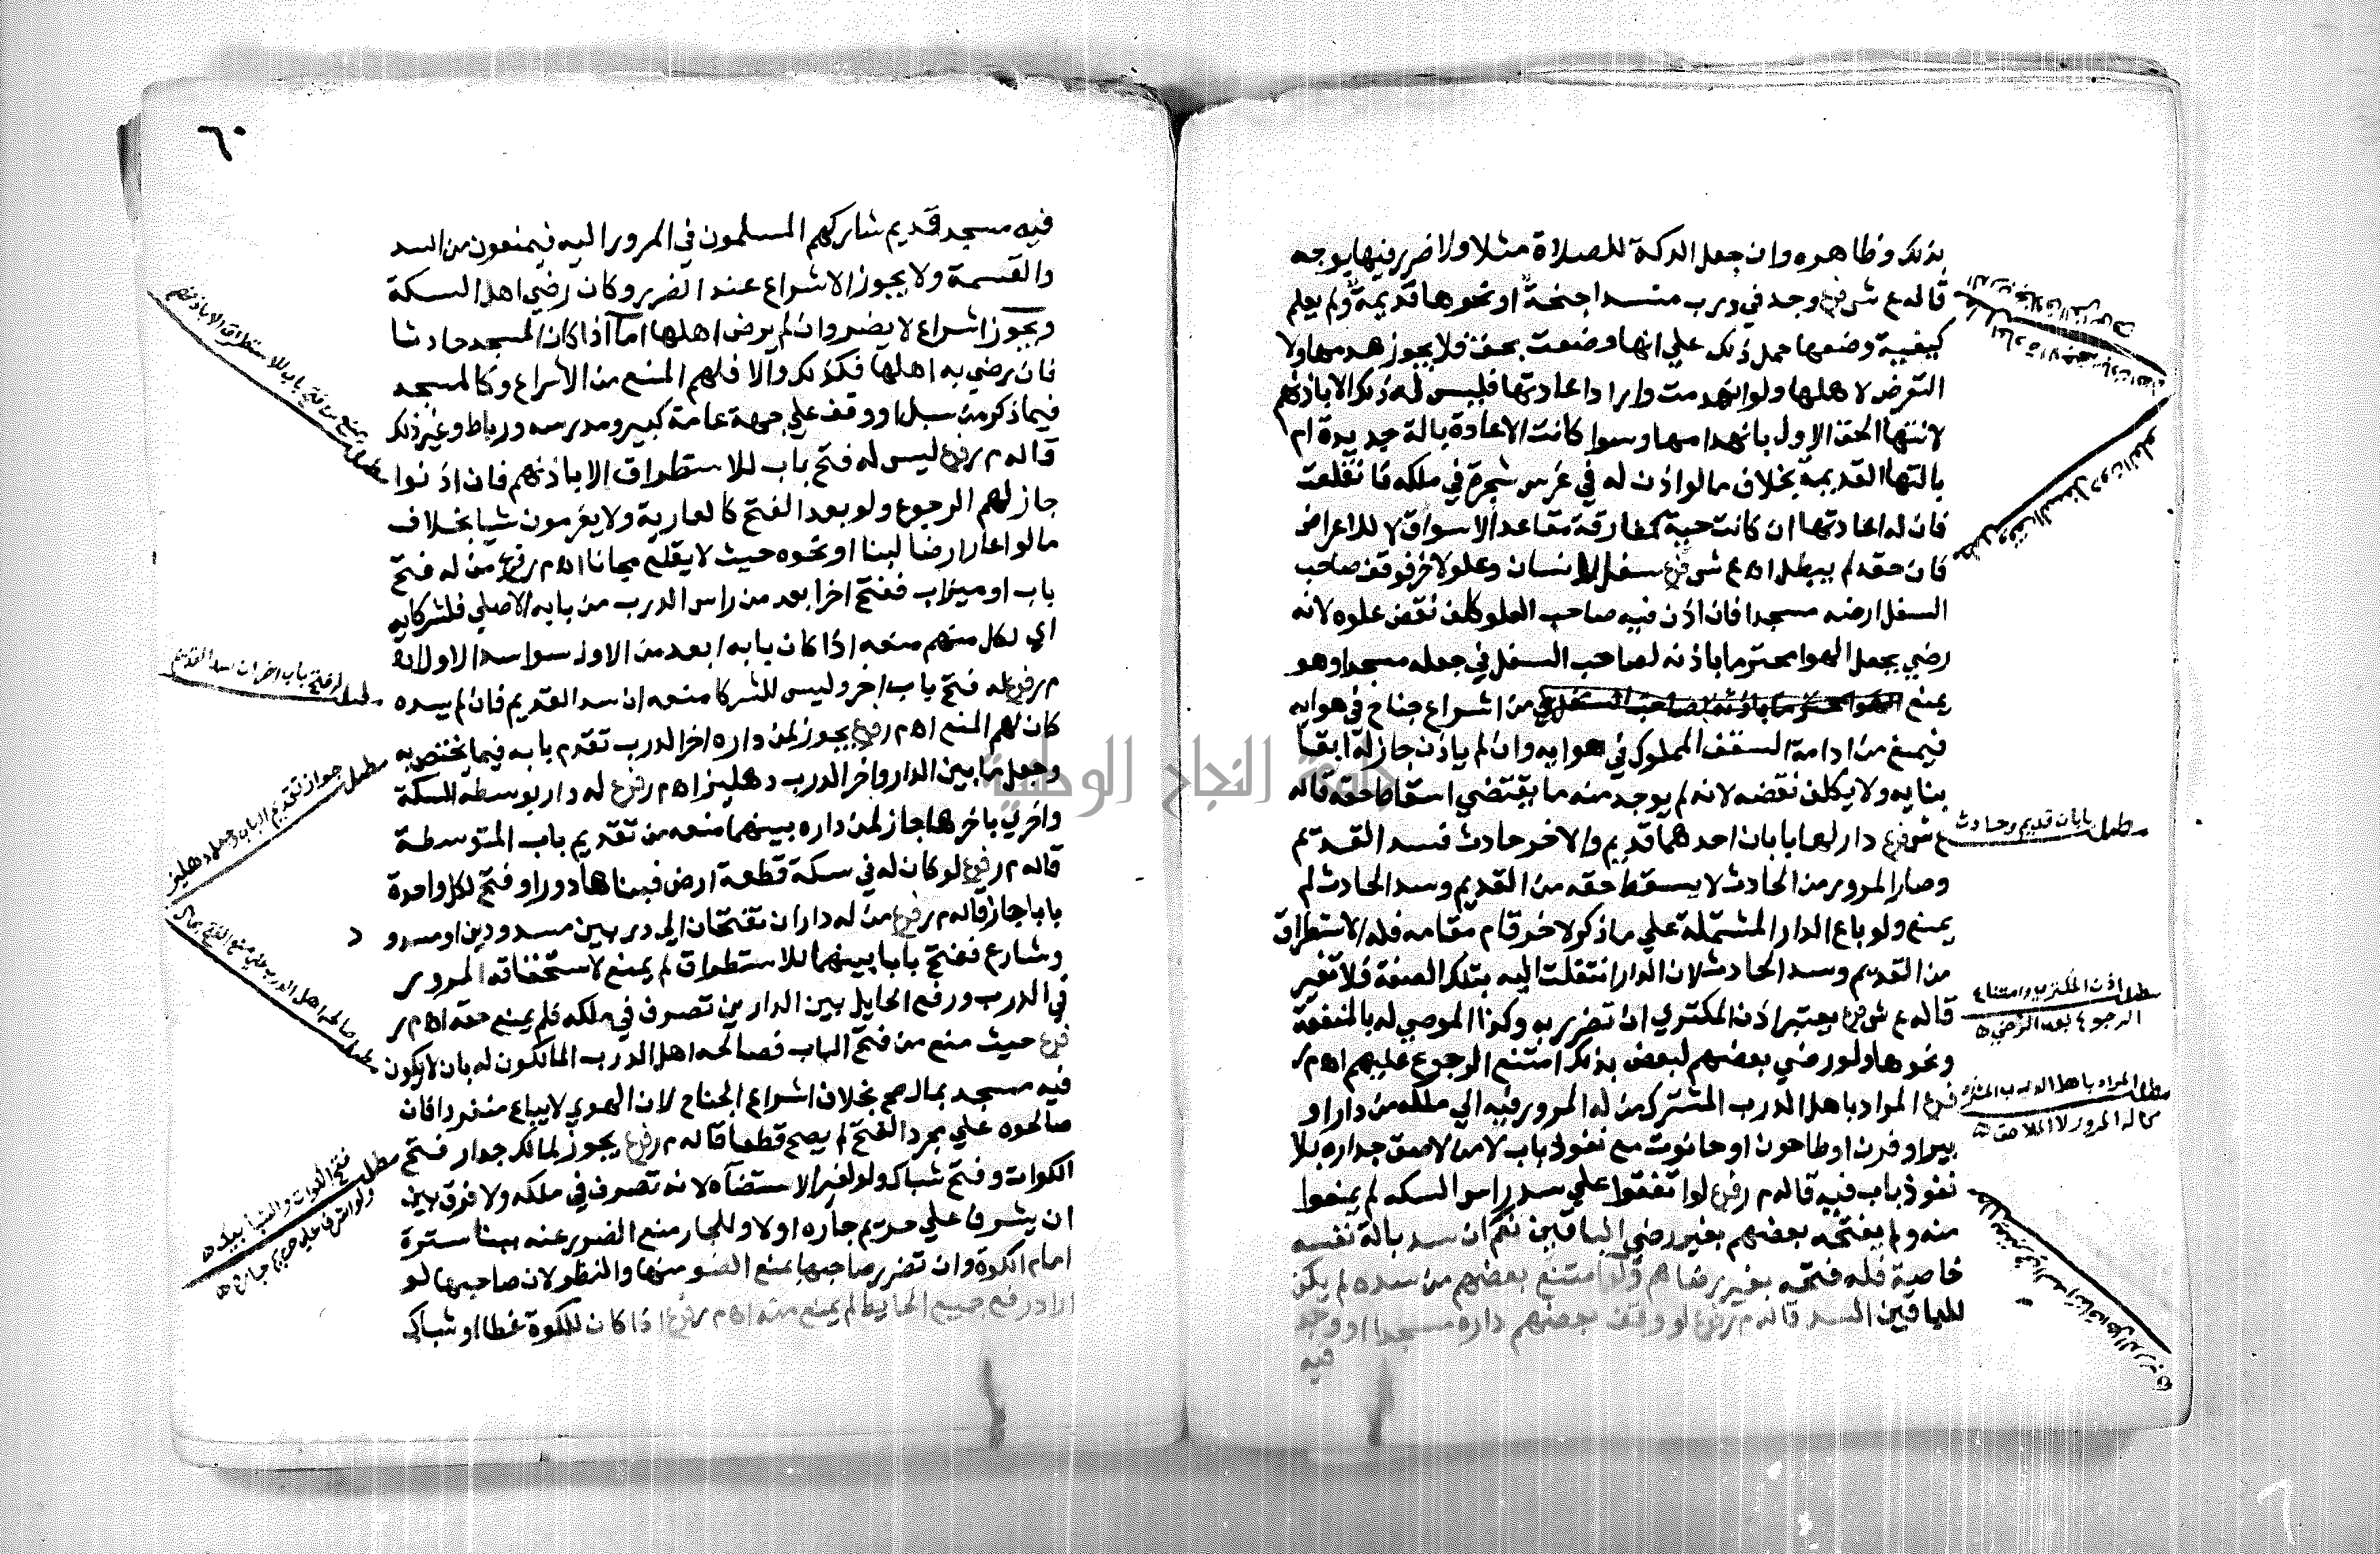 بذلك وظاهره وان جعل الدكة للصلاة مثلا ولا ضرر فيها بوجه
قاله ع ش فرع وجد في درب منسد اجنحة او نحوها قديمة ولم يعلم
كيفية وضعها حمل ذلك علي انها وضعت بحق فلا يجوز هدمها ولا
التعرض لاهلها ولو انهدمت وارادا عادتها فليس له ذلك الا باذنهم
لانتها الحق الاول بانهدامها وسوا كانت الاعادة بالة جديدة ام
بالتها القديمة بخلاف ما لو اذن له في غرس شجرة في ملكه فانقلعت
فان له اعادتها ان كانت حية كمفارقة مقاعد الاسواق لا للاعراض
فان حقه لم يبطل اه ع ش فرع سفل لانسان وعلو لاخر فوقف صاحب
السفل ارضه مسجدا فان اذن فيه صاحب العلو كلف نقض علوه لانه
رضي بجعل الهوا محترما باذنه لصاحب السفل في جعله مسجدا وهو
يمنع من اشراع جناح في هوايه
فيمنع من ادامة السقف المملوك في هوايه وان لم ياذن جاز له ابقا
بنايه ولا يكلف نقضه لانه لم يوجد منه ما يقتضي اسقاط حقه قاله
ع ش فرع دار لها بابان احدهما قديم والاخر حادث فسد القديم
وصار المرور من الحادث لا يسقط حقه من القديم وسد الحادث لم
يمنع ولو باع الدار المشتملة علي ما ذكر لاخر قام مقامه فله الاستطراق
من القديم وسد الحادث لان الدار انتقلت اليه بتلك الصفة فلا تغير
قاله ع ش فرع يعتبر اذن المكتري ان تضرر به وكذا الموصي له بالمنفعة
ونحوها ولو رضي بعضهم لبعض بذلك امتنع الرجوع عليهم اه م ر
فرع المراد باهل الدرب المشترك من له المرور فيه الي ملكه من دار او
بير او فرن او طاحون او حانوت مع نفوذ باب لا من لاصق جداره بلا
نفوذ باب فيه قاله م ر فرع لو اتفقوا علي سد راس السكه لم يمنعوا
منه ولم يفتحه بعضهم بغير رضي الباقين نعم ان سد بالة نفسه
خاصة فله فتحه بغير رضاهم ولو امتنع بعضهم من سده لم يكن
للباقين السد قاله م ر فرع لو وقف بعضهم داره مسجدا او وجد
فيه
مطلب بابان قديم وحادث
مطلب اذن المكتري وامتناع
الرجوع بعد الرضي
مطلب المراد باهل الدرب المشترك
من له المرور لا الملاصق
٦٠
فيه مسجد قديم شاركهم المسلمون في المرور اليه فيمنعون من السد
والقسمة ولا يجوز الاشراع عند الضرر وكان رضي اهل السكة
ويجوز اشراع لا يضر وان لم يرض اهلها اما اذا كان المسجد حادثا
فان رضي به اهلها فكذلك والا فلهم المنع من الاشراع وكالمسجد
فيما ذكر من سبل او وقف علي جهة عامة كبير ومدرسه ورباط وغير ذلك
قاله م ر فرع ليس له فتح باب للاستطراق الا باذنهم فان اذنوا
جاز لهم الرجوع ولو بعد الفتح كالعارية ولا يغرمون شيا بخلاف
ما لو اعار ارضا لبنا او نحوه حيث لا يقلع مجانا اه م ر فرع من له فتح
باب او ميزاب ففتح اخر ابعد من راس الدرب من بابه الاصلي فلشركايه
اي لكل منهم منعه اذا كان بابه ابعد من الاول سوا سد الاول اه
م ر فرع له فتح باب اخر وليس للشركا منعه ان سد القديم فان لم يسده
كان لهم المنع اه م ر فرع يجوز لمن داره اخر الدرب تقدم بابه فيما يختص به
وجعل ما بين الدار واخر الدرب دهليزا اه م ر فرع له دار بوسطه السكة
واخري باخرها جاز لمن داره بينهما منعه من تقديم باب المتوسطة
قاله م ر فرع لو كان له في سكة قطعة ارض فبناها دورا وفتح لكل واحدة
بابا جاز قاله م ر فرع من له داران تفتحان الي دربين مسدودين او مسدود
وشارع ففتح بابا بينهما للاستطراق لم يمنع لاستحقاقه المرور
في الدرب ورفع الحايل بين الدارين تصرف في ملكه فلم يمنع حقه اه م ر
فرع حيث منع من فتح الباب فصالحه اهل الدرب المالكون له بان لا يكون
فيه مسجد بمال صح بخلاف اشراع الجناح لان الهوي لا يباع منفردا فان
صالحوه علي مجرد الفتح لم يصح قطعا قاله م ر فرع يجوز لمالك جدار فتح
الكوات وفتح شباك ولو لغير الاستضاه لانه تصرف في ملكه ولا فرق بين
ان يشرف علي حريم جاره او لا وللجار منع الضرر عنه ببنا سترة
امام الكوة وان تضرر صاحبها بمنع الضو منها والنظر لان صاحبها لو
اراد رفع جميع الحايط لم يمنع منه اه م ر فرع اذا كان للكوة غطا او شباك
مطلب منع فتح باب للاستطراق الا باذنهم
مطلب له فتح باب اخر ان سد القديم
مطلب جواز تقديم الباب وجعله دهليز
مطلب صالحه اهل الدرب علي منع الفتح بمال
مطلب فتح الكوات والشبابيك
ولو اشرف علي حريم جاره
جامعة النجاح الوطنية